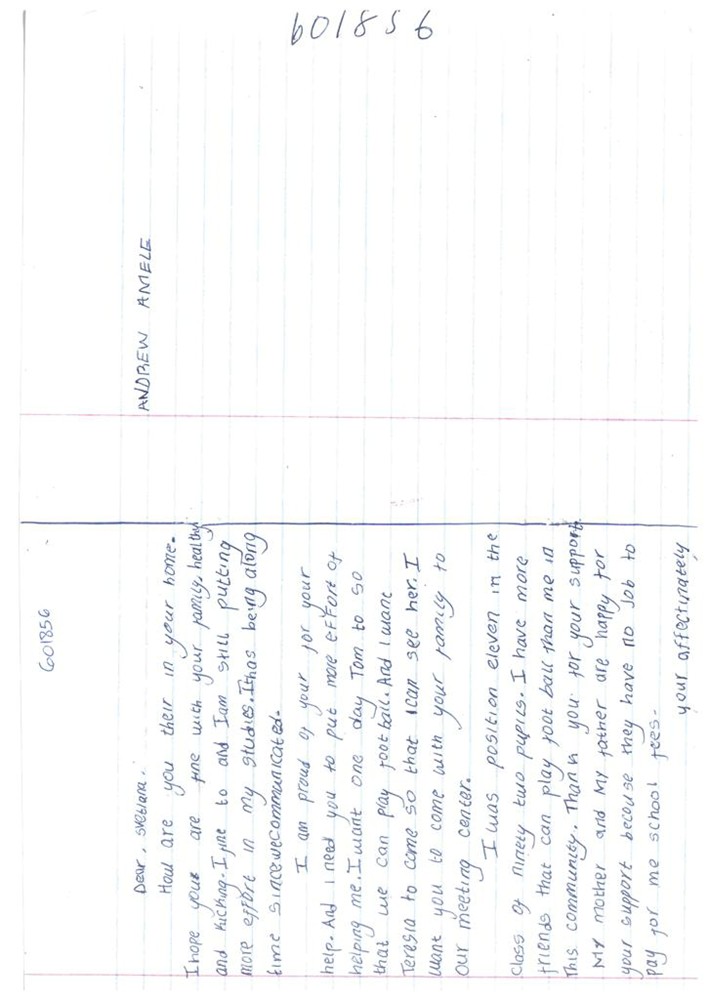 601856
601856
Dear, svetlana.
How are you their in your home.
I hope your are fine with your family, healthy
and kicking. I fine to and Iam still putting
more effort in my studies. Ithas being along
time sincewecommunicated.
I am proud of your for your
help. And I need you to put more effort of
helping me. I want one day Tom to so
that we can play foot ball. And I want
Teresia to come so that ican see her. I
want you to come with your family to
our meeting center.
I was position eleven in the
Class of ninety two pupils. I have more
friends that can play foot ball than me in
This community. Thank you for your support.
My mother and My father are happy for
your support because they have no Job to
pay for me school fees.
your affectinately
ANDREW AMELE